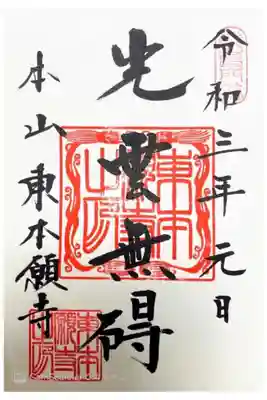 令和三年元日
光雲無碍
本山東本願寺
東本願寺之印
東本願寺之印